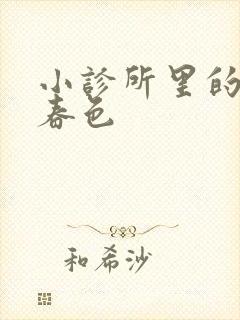 小診所里的
春色
和希沙